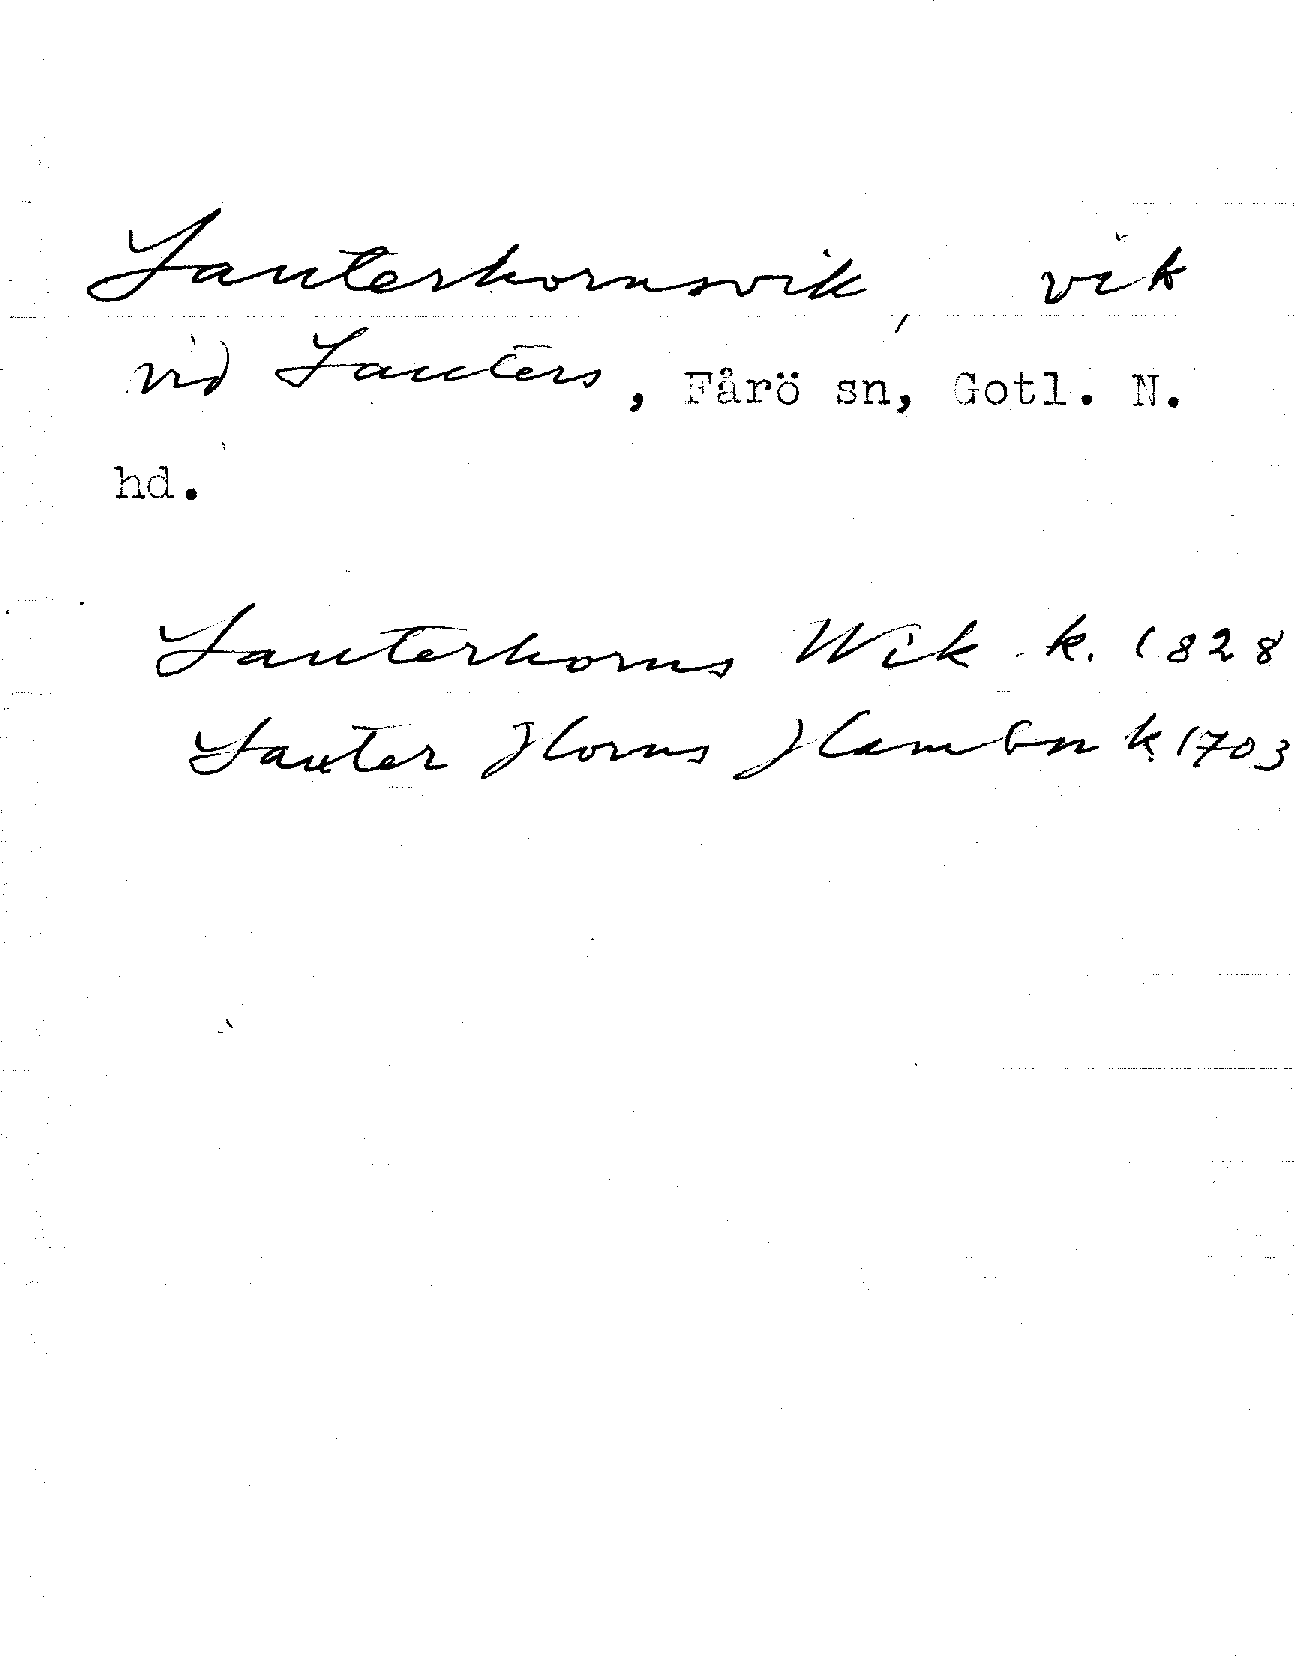 Lauterhornsvik, vik
vid Lauters, Fårö sn, Gotl. N.
hd.
Lauterhorns Wik k. 1828
Lauter Horns Hambn k 1703